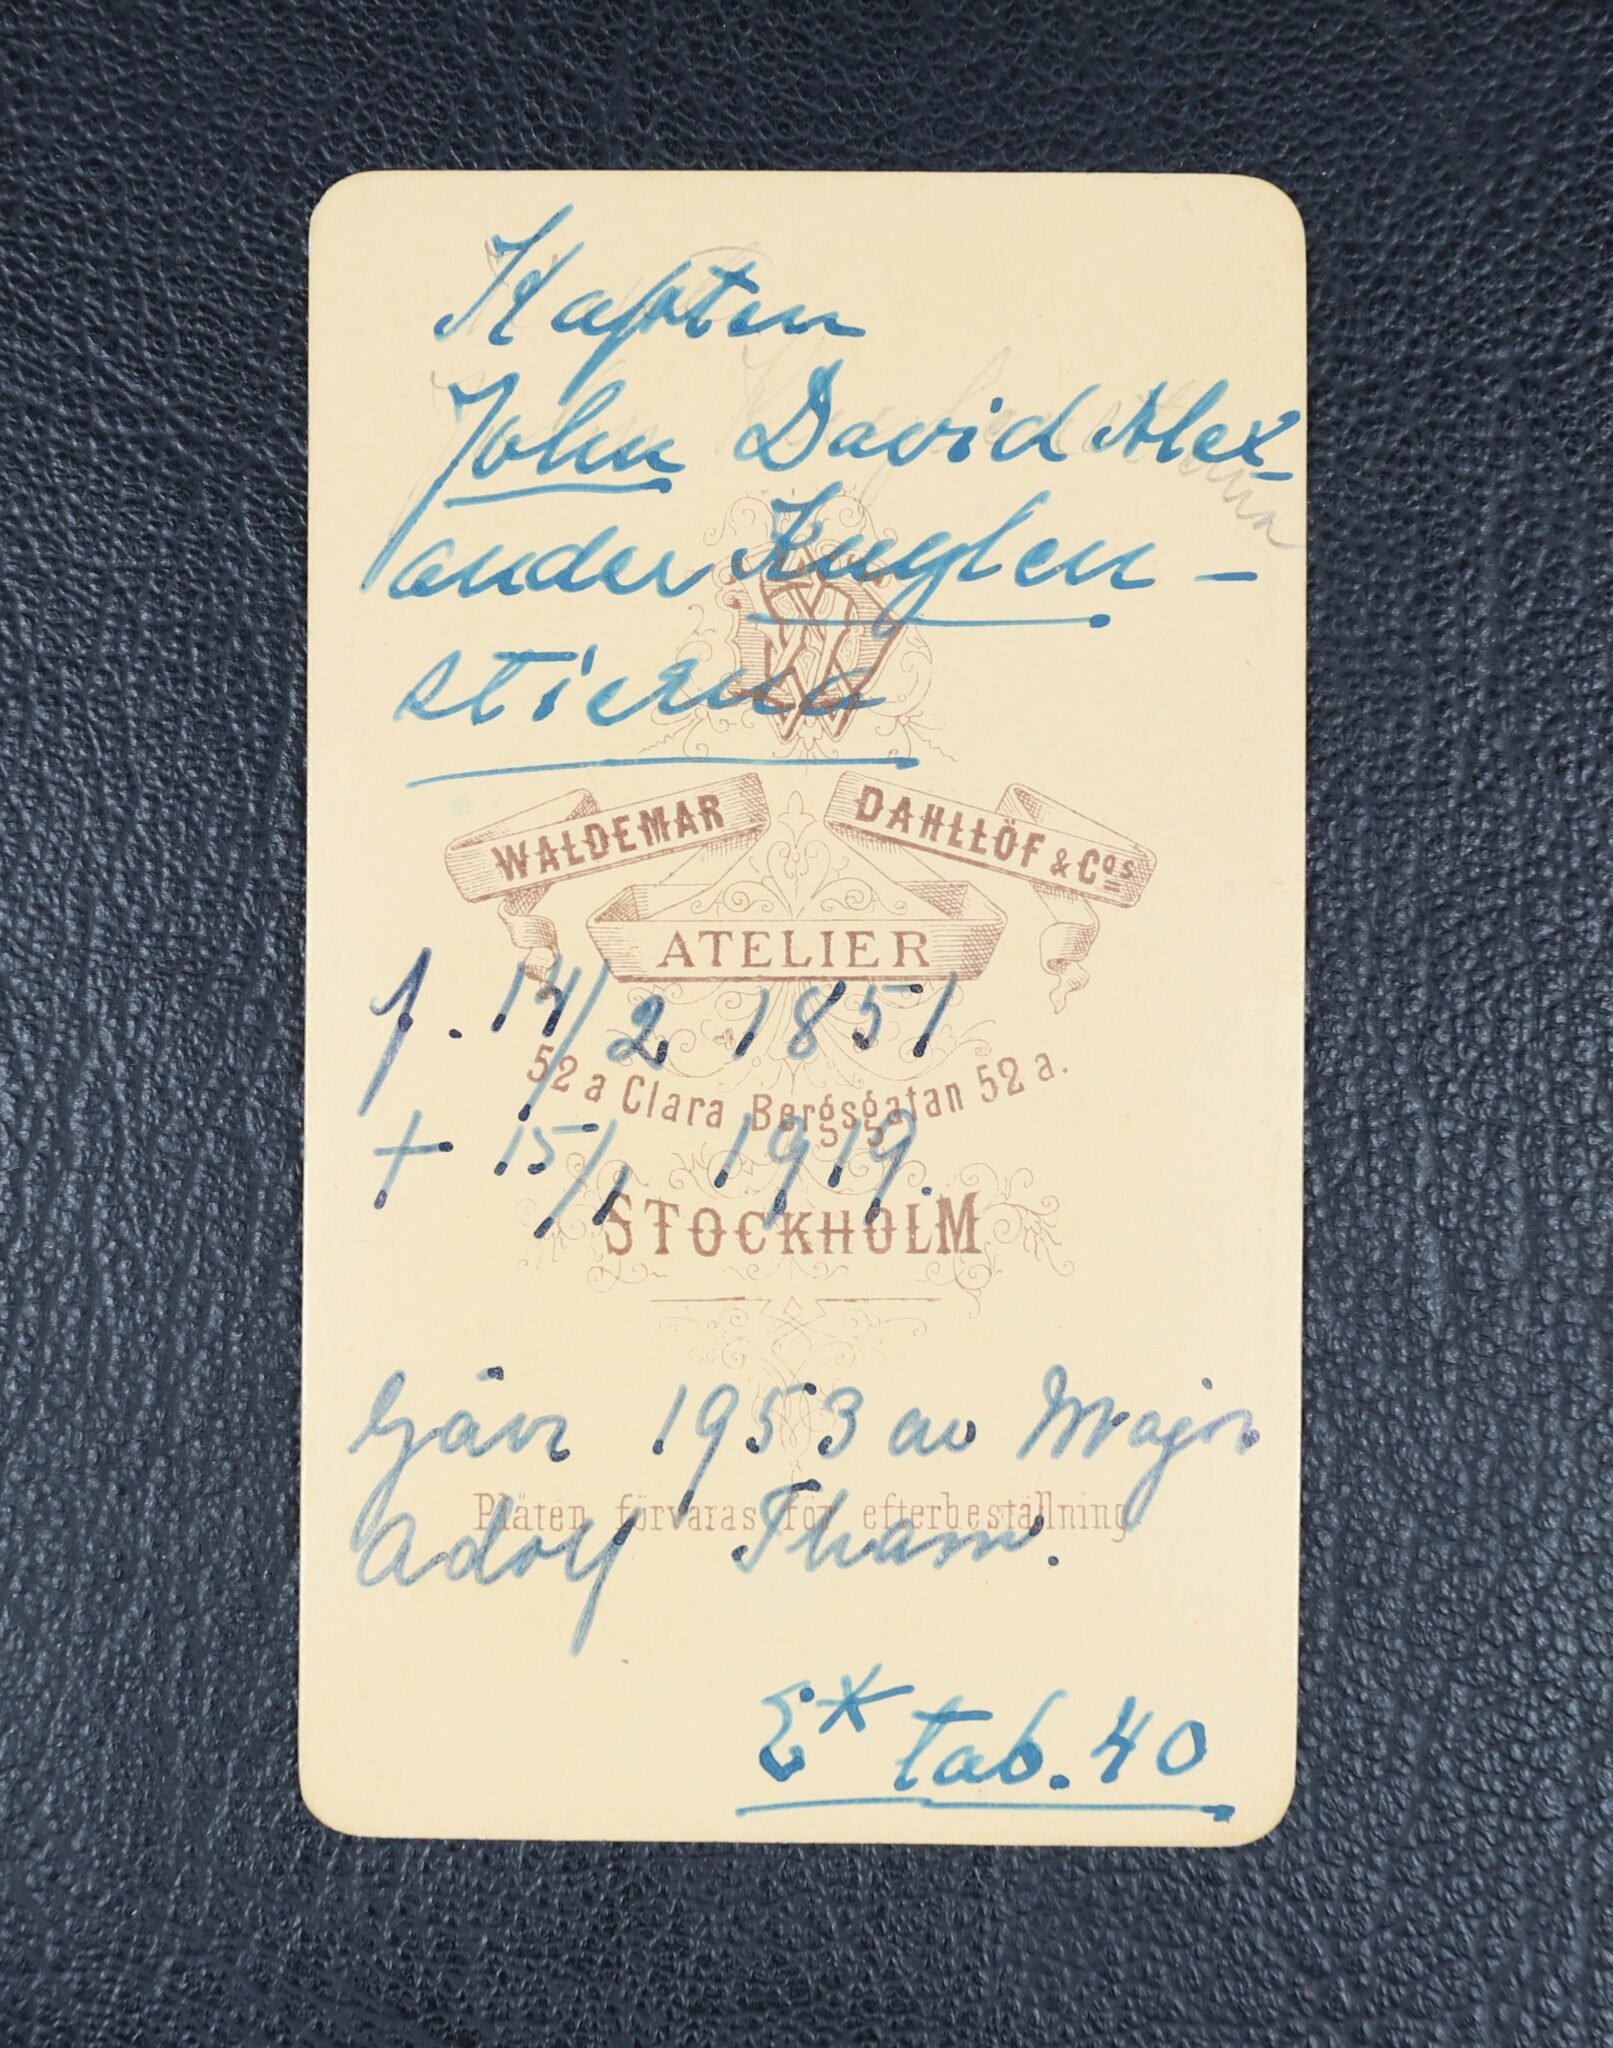 Kapten
John David Alex-
ander Kuylen-
stierna
WALDEMAR DAHLLÖF & Cos
ATELIER
f. 14/2 1851
52 a Clara Bergsgatan 52 a.
+ 15/1 1919.
STOCKHOLM
Gåva 1953 av Major
Plåten förvaras för efterbeställning
Adolf Tham.
E* tab. 40